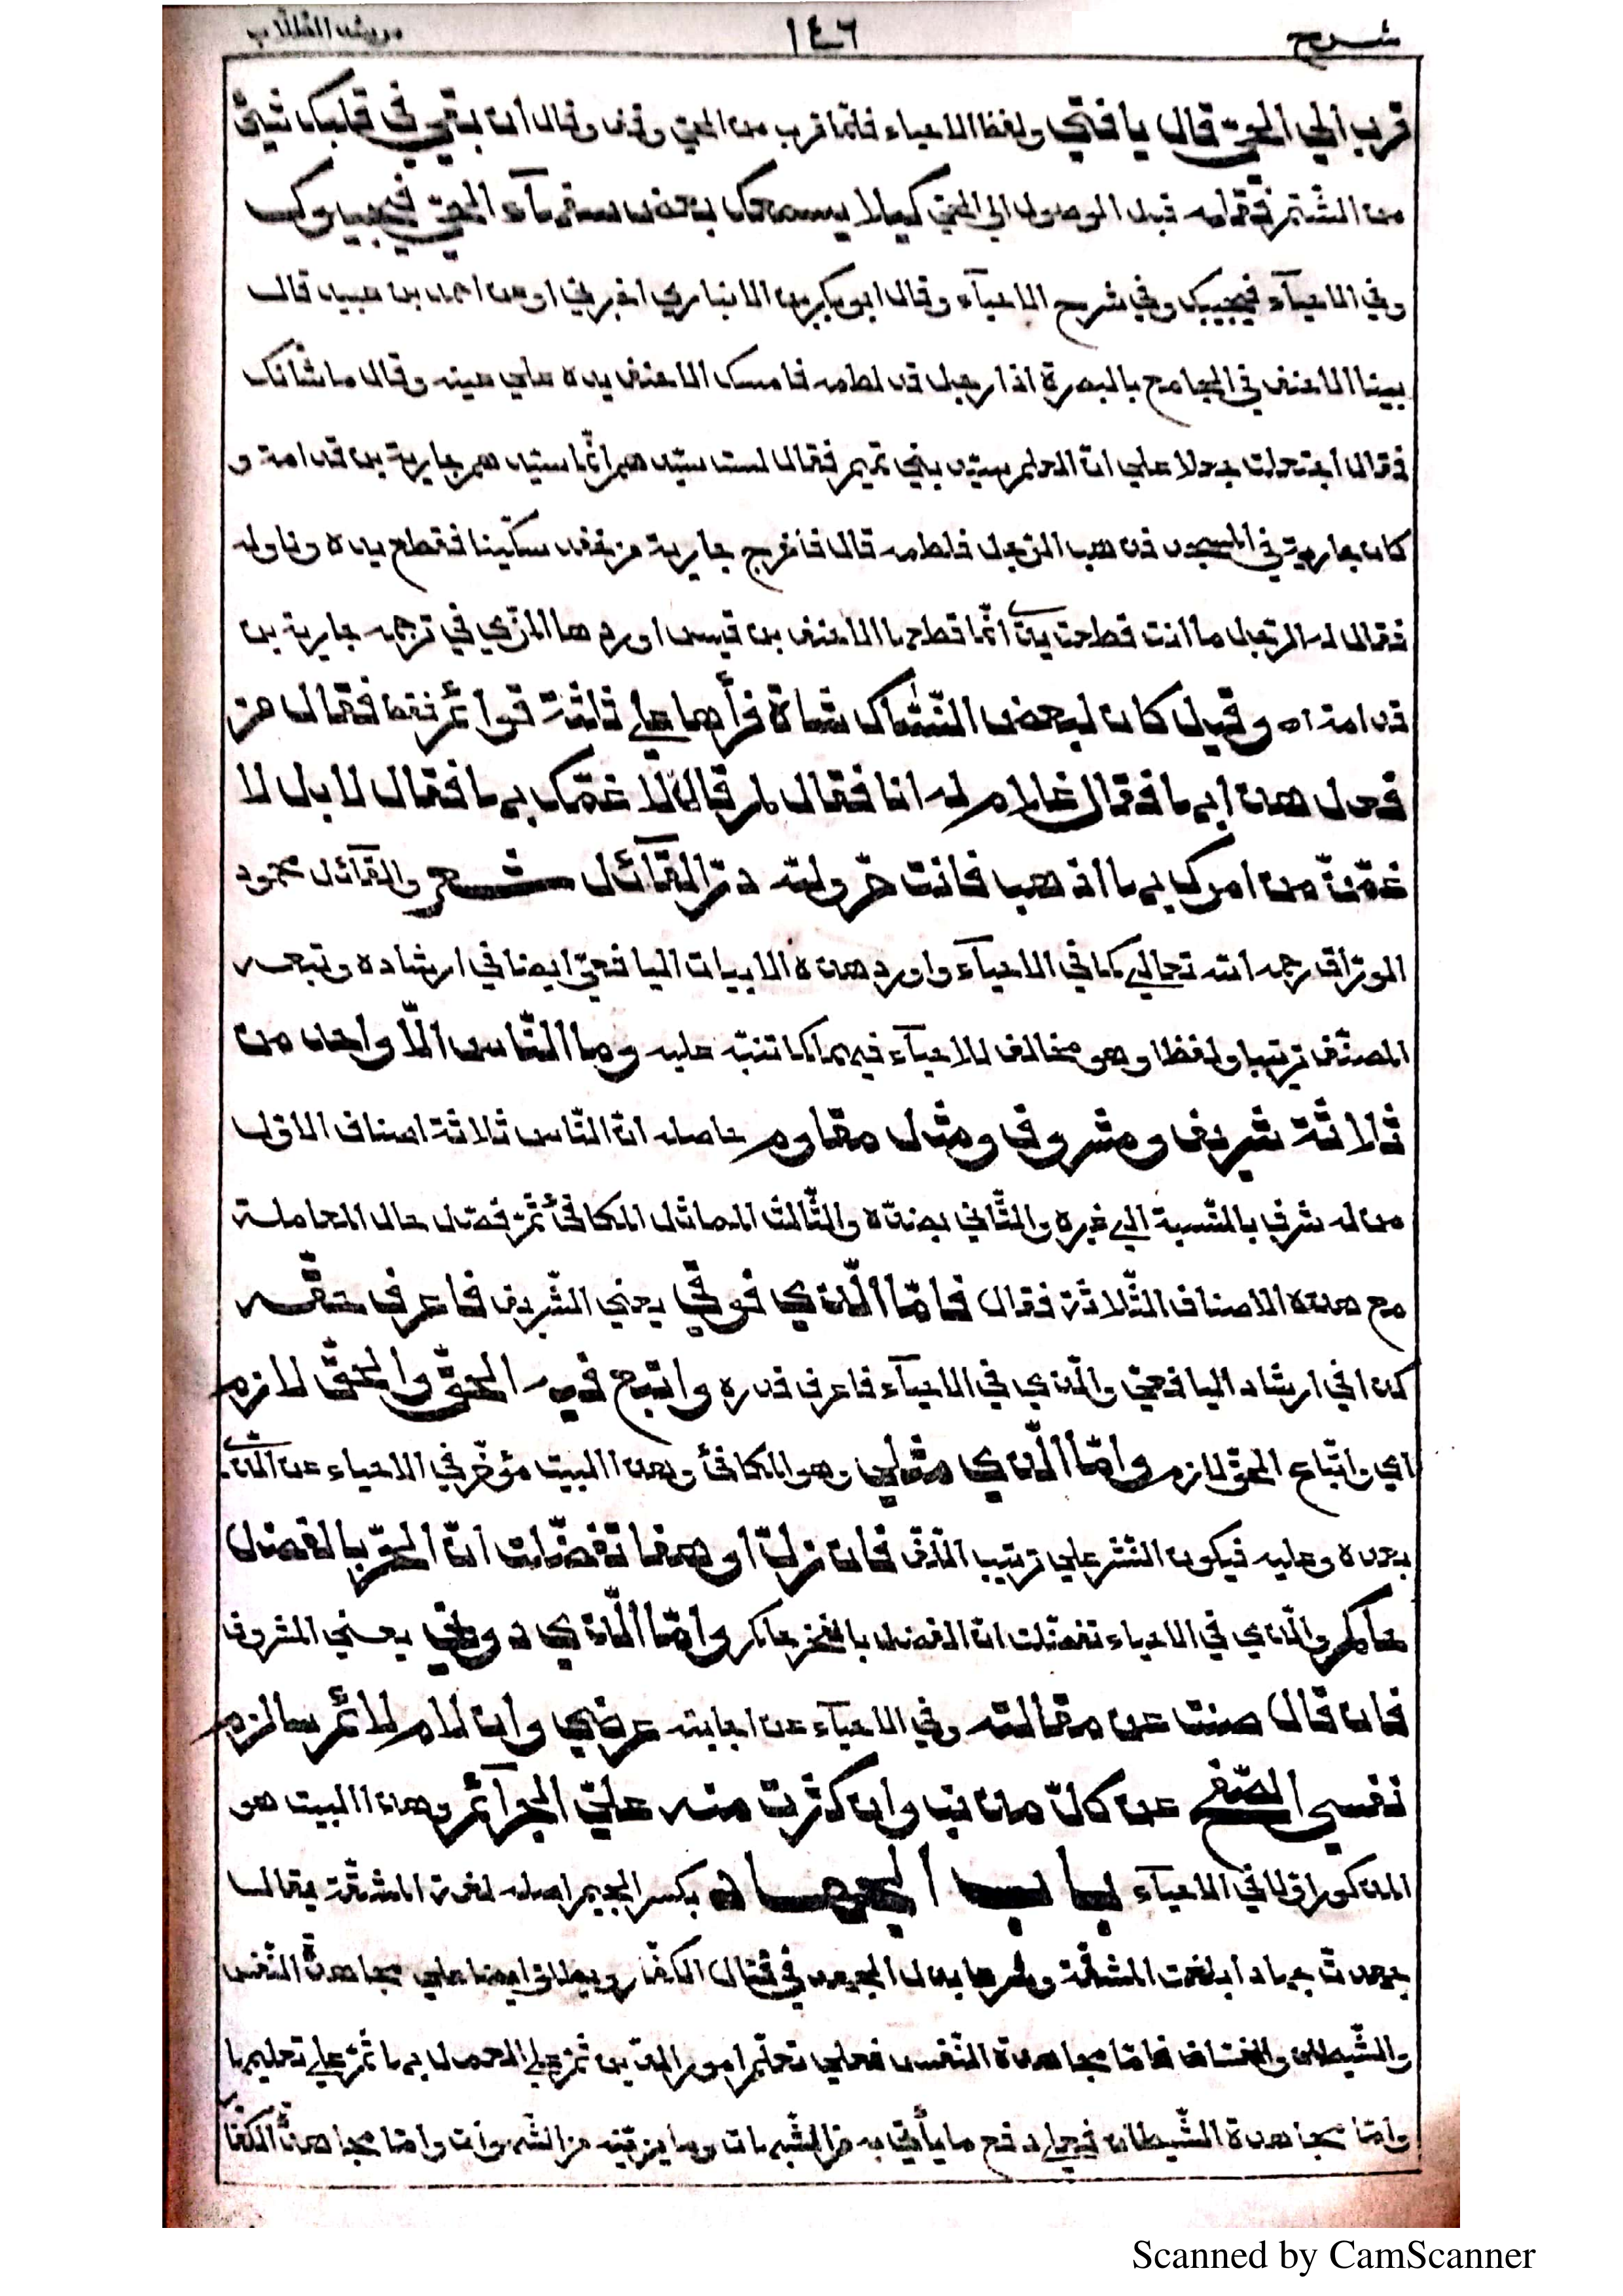 شرح ١٤٦ مرشد الطلاب
قرب الي الحيّ قال يا فتي ولفظ الاحياء فلمّا قرب من الحيّ وقف وقال ان بقي في قلبك شيئ
من الشّتم فقله قبل الوصول الي الحيّ كيلا يسمعك بعض سفهآء الحيّ فيجيبوك
وفي الاحيآء فيجيبك وفي شرح الاحيآء وقال ابو بكر بن الانباري اخبرني او عن احمد بن عبيد قال
بينا الاحنف في الجامع بالبصرة اذا رجل قد لطمه فامسك الاحنف يده علي عينه وقال ما شانك
فقال اجتعلت جعلا علي ان الطم سيّد بني تميم فقال لست سيّدهم انّما سيّدهم جارية بن قدامة و
كان جارية في المسجد فذهب الرّجل فلطمه قال فاخرج جارية من خفه سكّينا فقطع يده وناوله
فقال له الرّجل ما انت قطعت يدي انّما قطعها الاحنف بن قيس اوردها المزّي في ترجمه جارية بن
قدامة اه وقيل كان لبعض النّسّاك شاة فرأها علي ثلثة قوائم فقال من
فعل هذا بها فقال غلام له انا فقال لم قال لاغمّك بها فقال لا بل لا
غمّنّ من امرك بها اذهب فانت حرّ ولله درّ القآئل شعر والقآئل محمود
الورّاق رحمه الله تعالي كما في الاحيآء واورد هذه الابيات اليافعيّ ايضا في ارشاده وتبعه
المصنّف ترتيبا ولفظا وهو مخالف للاحيآء فيهما كما تنبّه عليه وما النّاس الّا واحد من
ثلاثة شريف ومشروف ومثل مقاوم حاصله انّ النّاس ثلاثة اصناف الاوّل
من له شرف بالنّسبة الي غيره والثّاني بضدّه والثّالث المماثل المكافئ ثمّ فصّل حال المعاملة
مع هذه الاصناف الثّلاثة فقال فامّا الّذي فوقي يعني الشّريف فاعرف حقّه
كذا في ارشاد اليافعيّ والّذي في الاحيآء فاعرف قدره واتبع فيه الحقّ والحقّ لازم
اي واتّباع الحقّ لازم وامّا الّذي مثلي وهو المكافئ وهذا البيت مؤخّر في الاحياء عن الّذي
بعده وعليه فيكون النّشر علي ترتيب اللّفّ فان زلّ او هفا تفضّلت انّ الحرّ بالفضل
حاكم والّذي في الاحياء تفضّلت انّ الفضل بالفخر حاكم وامّا الّذي دوني يعني المشروف
فان قال صنت عن مقالته وفي الاحيآء عن اجابته عرضي وان لام لائم سالزم
نفسي الصّفح عن كلّ مذنب وان كثرت منه عليّ الجرآئم وهذا البيت هو
المذكور اوّلا في الاحيآء باب الجهاد بكسر الجيم اصله لغة المشقّة يقال
جهدت جهادا بلغت المشقّة وشرعا بذل الجهد في قتال الكفّار ويطلق ايضا علي مجاهدة النّفس
والشّيطان والفسّاق فامّا مجاهدة النّفس فعلي تعلّم امور الدّين ثمّ علي العمل بها ثمّ علي تعليمها
وامّا مجاهدة الشّيطان فعلي دفع ما يأتي به من الشّبهات وما يزيّنه من الشّهوات وامّا مجاهدة الكفّار
Scanned by CamScanner